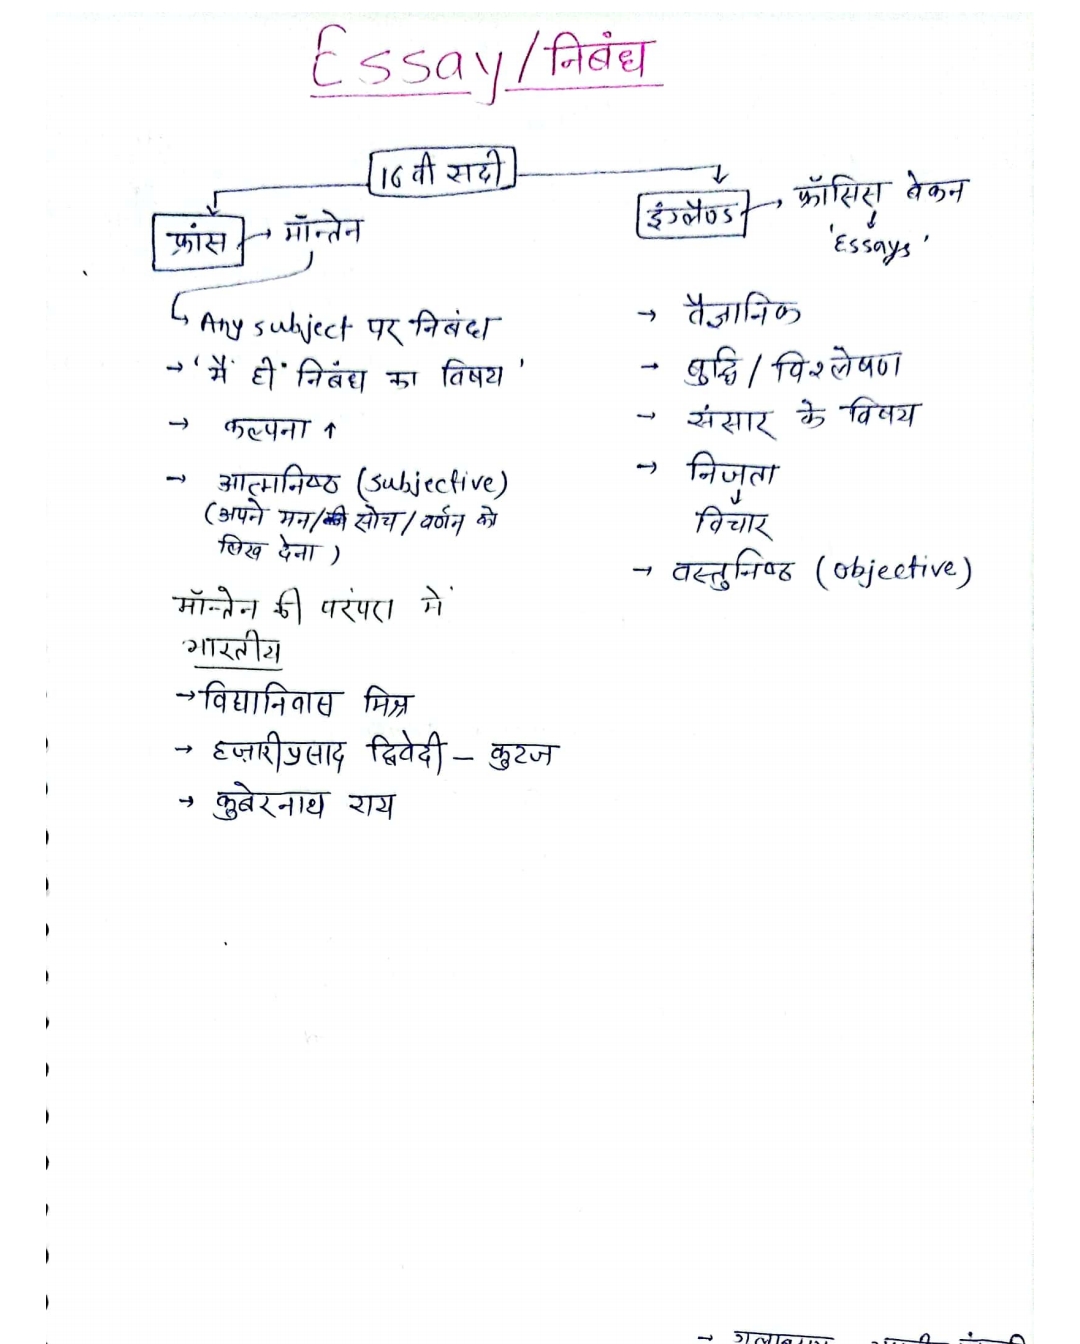 Essay/निबंध
16 वी सदी
फ्रांस → मॉन्तेन
Any subject पर निबंध
→ 'मैं ही निबंध का विषय'
→ कल्पना ↑
→ आत्मनिष्ठ (subjective)
(अपने मन/की सोच/वर्णन को
लिख देना)
मॉन्तेन की परंपरा में
भारतीय
→ विद्यानिवास मिश्र
→ हजारीप्रसाद द्विवेदी – कुटज
→ कुबेरनाथ राय
इंग्लैण्ड → फ्रॉसिस बेकन
↓
'Essays'
→ वैज्ञानिक
→ बुद्धि/विश्लेषण
→ संसार के विषय
→ निजता
↓
विचार
→ वस्तुनिष्ठ (objective)